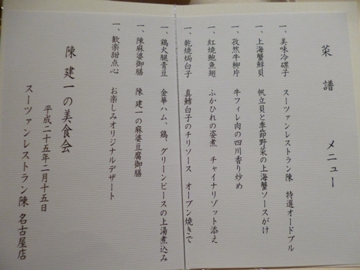 菜譜 メニュー
一、美味冷碟子 スーツァンレストラン陳 特選オードブル
一、上海蟹鮮貝 帆立貝と季節野菜の上海蟹ソースがけ
一、孜然牛柳片 牛フィレ肉の四川香り炒め
一、紅焼鮑魚翅 ふかひれの姿煮 チャイナリゾット添え
一、乾焼焗白子 真鱈白子のチリソース オーブン焼きで
一、鶏火腿青豆 金華ハム、鶏、グリーンピースの上湯煮込み
一、陳麻婆御膳 陳建一の麻婆豆腐御膳
一、歓楽甜点心 お楽しみオリジナルデザート
陳建一の美食会
平成二十五年二月十五日
スーツァンレストラン陳 名古屋店